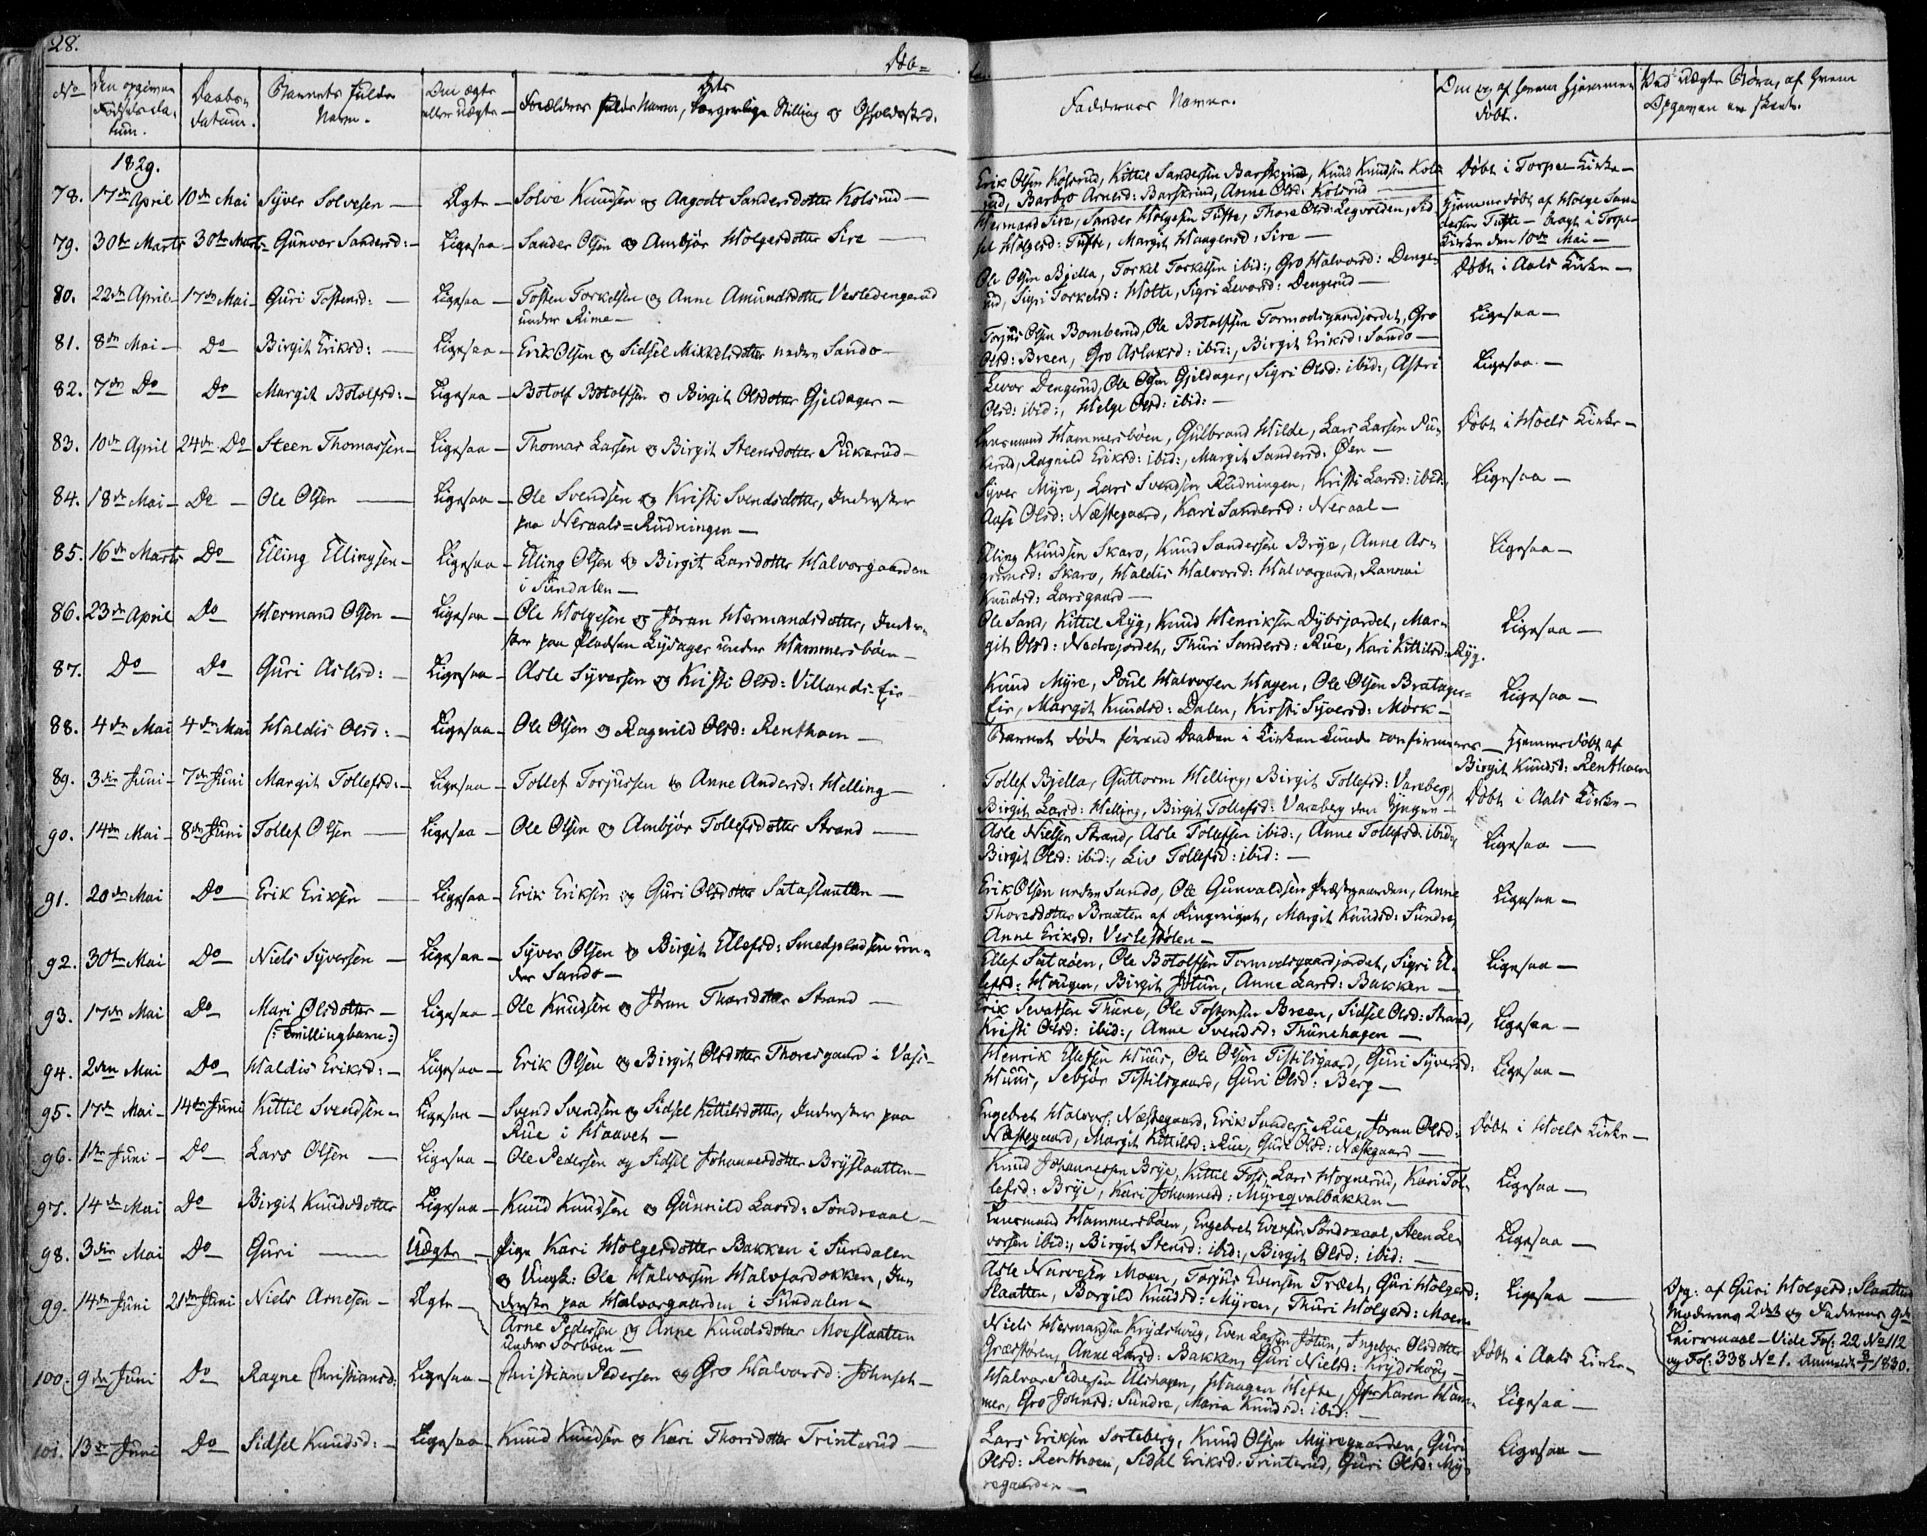 28.
Døb=
No
Den opgivne Fødselsdatum.
Daabsdatum.
Barnets fulde Navn.
Om ægte eller Uægte
Forældres fulde Navn, Dets borgerlige Stilling og Opholdssted.
Faddernes Navne.
Om og af hvem hjemmedøbt.
Ved Uægte Børn, af hvem Opgaven er skeet.
1829.
78. 17de April 10de Mai Syver Solvesen — Ægte — Solve Knudsen og Aagodt Sandersdotter Kolsrud —
Erik Olsen Kolsrud, Kittil Sandersen Barskrud, Knud Knudsen Kols-
rud, Barbro Arnesd: Barskrud, Anne Olsd: Kolsrud —
Døbt i Torpe Kirke —
79. 30te Marts 30te Marts Gunvor Sandersd: — Ligesaa — Sander Olsen og Ambjør Holgersdotter Sire —
Hermand Sire, Sander Holgesen Tufte, Thore Olsd: Legvolden, Sid-
sel Holgerd: Tufte, Margit Haagensd: Sire —
Hjemmedøbt af Holge San-
dersen Tufte — bragt i Torpe
Kirke den 10de Mai —
80. 22de April 17de Mai Guri Tostensd: — Ligesaa — Tosten Torkelsen og Anne Amundsdotter Vesledengerud
under Rime —
Ole Olsen Bjella, Torkel Torkelsen ibid:, Gro Halvorsd: Denge-
rud, Sigri Torkelsd: Holte, Sigri Levorsd: Dengerud —
Døbt i Aals Kirke —
81. 8de Mai — Do Birgit Eriksd: — Ligesaa — Erik Olsen og Sidsel Mikkelsdotter nedre Sando —
Torjus Olsen Bomberud, Ole Botolfsen Tormodsgaardjordet, Gro
Olsd: Breen, Gro Aslaksd: ibid:, Birgit Eriksd: Sando —
Ligesaa —
82. 7de Do Do Margit Botolfsd: — Ligesaa — Botolf Botolfsen og Birgit Olsdotter Gjeldager —
Levor Dengerud, Ole Olsen Gjeldager, Sigri Olsd: ibid:, Astri
Olsd: ibid:, Helge Olsd: ibid: —
Ligesaa —
83. 10de April 24de Do Steen Thomassen — Ligesaa — Thomas Larsen og Birgit Steensdotter Pukerud —
Lensmand Hammersbøen, Gulbrand Hilde, Lars Larsen Pu-
kerud, Ragnild Eriksd: ibid:, Margit Sandersd: Øen —
Døbt i Hoels Kirke —
84. 18de Mai — Do — Ole Olsen — Ligesaa — Ole Svendsen og Kristi Svendsdotter, Inderster
paa Neraals=Rudningen —
Syver Myre, Lars Svendsen Rudningen, Kristi Larsd: ibid:,
Aase Olsd: Næstegaard, Kari Sandersd: Neraal —
Ligesaa —
85. 16de Marts Do Elling Ellingsen — Ligesaa — Elling Olsen og Birgit Larsdotter Halvorgaarden
i Sundalen —
Elling Knudsen Skaro, Knud Sandersen Brye, Anne As-
grimsd: Skaro, Haldis Halvorsd: Halvorgaard, Ranvei
Knudsd: Larsgaard —
Ligesaa —
86. 23de April Do Hermand Olsen — Ligesaa — Ole Holgesen og Jøran Hermandsdotter, Inder-
ster paa Pladsen Lysager under Hammersbøen —
Ole Sand, Kittil Ryg, Knud Henriksen Dybsjordet, Mar-
git Olsd: Nedrejordet, Thuri Sandersd: Rue, Kari Kittilsd: Ryg.
Ligesaa —
87. Do Do Guri Aslesd: — Ligesaa — Asle Syversen og Kristi Olsd: Villands-Eie
Knud Myre, Poul Halvorsen Hagen, Ole Olsen Bratager-
Eie, Margit Knudsd: Dalen, Kirsti Syversd: Mørk —
Ligesaa —
88. 4de Mai 4de Mai Haldis Olsd: — Ligesaa — Ole Olsen og Ragnild Olsd: Renthoen —
Barnet døde førend Daaben i Kirken kunde confirmeres — Hjemmedøbt af
Birgit Knudsd: Renthoen
89. 3die Juni — 7de Juni Margit Tollefsd: — Ligesaa — Tollef Torjussen og Anne Andersd: Helling —
Tollef Bjella, Guttorm Helling, Birgit Tollefsd: Vareberg,
Birgit Larsd: Helling, Birgit Tollefsd: Vareberg den Yngre —
Døbt i Aals Kirke —
90. 14de Mai — 8de Juni Tollef Olsen — Ligesaa — Ole Olsen og Ambjør Tollefsdotter Strand —
Asle Nielsen Strand, Asle Tollefsen ibid:, Anne Tollefsd: ibid:,
Birgit Olsd: ibid:, Liv Tollefsd: ibid: —
Ligesaa —
91. 20de Mai Do Erik Eriksen — Ligesaa — Erik Eriksen og Guri Olsdotter Sataslaatten —
Erik Olsen nedre Sando, Ole Gunvaldsen Præstegaarden, Anne
Thoresdotter Braaten af Ringeriget, Margit Knudsd: Sundre,
Anne Eriksd: Veslestølen —
Ligesaa —
92. 30te Mai Do Niels Syversen — Ligesaa — Syver Olsen og Birgit Ellefsd: Smedpladsen un-
der Sando —
Ellef Sataøen, Ole Botolfsen Tormodsgaardjordet, Sigri El-
lefsd: Hougen, Birgit Jotun, Anne Larsd: Bakken —
Ligesaa —
93. 17de Mai Do Mari Olsdotter — Ligesaa — Ole Knudsen og Jøran Thorsdotter Strand —
(: Tvillingbarn :)
Erik Sevatsen Thune, Ole Tostensen Breen, Sidsel Olsd: Strand,
Kristi Olsd: ibid:, Anne Svendsd: Thunehagen —
Ligesaa —
94. 2den Mai Do Haldis Eriksd: — Ligesaa — Erik Olsen og Birgit Olsdotter Thoresgaard i Vats —
Henrik Ellefsen Huus, Ole Olsen Tistilsgaard, Guri Syversd:
Huus, Sebjør Tistilsgaard, Guri Olsd: Berg —
Ligesaa —
95. 17de Mai — 14de Juni Kittil Svendsen — Ligesaa — Svend Svendsen og Sidsel Kittilsdotter, Inderster paa
Rue i Haavet —
Engebret Halvors: Næstegaard, Erik Sanders: Rue, Jøran Olsd:
Næstegaard, Margit Kittilsd: Rue, Guri Olsd: Næstegaard —
Døbt i Hoels Kirke —
96. 1ste Juni — Do Lars Olsen — Ligesaa — Ole Pedersen og Sidsel Johannesdotter Bryslaatten —
Knud Johannessen Brye, Kittil Foss, Lars Hognerud, Kari Tol-
lefsd: Brye, Kari Johannesd: Myreqvalbakken —
Ligesaa —
97. 14de Mai Do Birgit Knudsdotter Ligesaa — Knud Knudsen og Gunnild Larsd: Sondreaal —
Lensmand Hammersbøen, Engebret Evensen Sondreaal, Steen Le-
vorsen ibid:, Birgit Stensd: ibid:, Birgit Olsd: ibid: —
Ligesaa —
98. 3die Mai Do Guri — Uægte — Pige Kari Holgersdotter Bakken i Sundalen
og Ungk: Ole Halvorsen Halvfardokken, In-
derster paa Halvorgaarden i Sundalen —
Asle Narvesen Moen, Torjus Evensen Træet, Guri Holgersd:
Slaatten, Borgild Knudsd: Myren, Thuri Holgersd: Moen
Ligesaa —
Opg: af Guri Holgersd: Slaatten
Moderens 2det og Faderens 9de
Leiermaal — Vide Fol: 22 No 112
og Fol: 338 No 1. Anmeldt 1830.
99. 14de Juni 21de Juni Niels Arnesen — Ægte — Arne Pedersen og Anne Knudsdotter Moeslaatten
under Torbøen —
Niels Hermandsen Krydshoug, Even Larsen Jotun, Ingebor Olsdotter
Græsstøren, Anne Larsd: Bakken, Guri Nielsd: Krydshoug —
Døbt i Aals Kirke —
100. 9de Juni Do Ragne Christiansd: Ligesaa — Christian Pedersen og Gro Halvorsd: Johnseh —
Halvor Pedersen Ulshagen, Haagen Hefte, Karen Ham-
mer, Gro Johnsd: Sundre, Maria Knudsd: ibid: —
Ligesaa —
101. 13de Juni Do Sidsel Knudsd: — Ligesaa — Knud Knudsen og Kari Thorsdotter Trinterud —
Lars Eriksen Sorteberg, Knud Olsen Myregaarden, Guri
Olsd: Renthoen, Sidsel Eriksd: Trinterud, Guri Olsd: My-
regaarden —
Ligesaa —